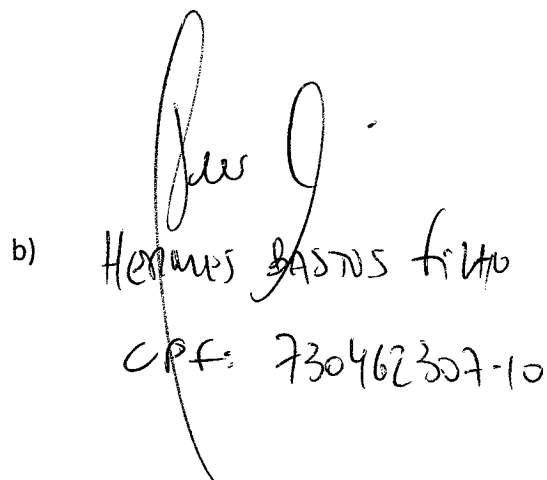 b) Hermes BASTOS filHO
CPf: 730462307-10